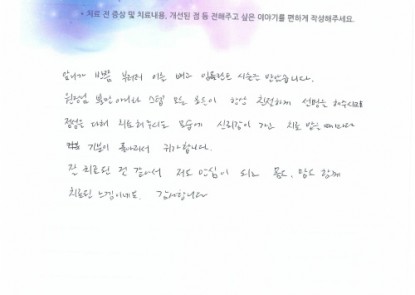 * 치료 전 증상 및 치료내용, 개선된 점 등 전해주고 싶은 이야기를 편하게 작성해주세요.
앞니가 부러져 이를 빼고 임플란트 시술을 받았습니다.
원장님 뿐만 아니라 스텝 모든 분들이 항상 친절하게 설명을 해주시고
정성을 다해 치료해주시는 모습에 신뢰감이 가고 치료 받은 때마다
기분이 좋아져서 귀가합니다.
잘 치료된 것 같아서 저도 안심이 되는 몸도, 맘도 함께
치료된 느낌이네요. 감사합니다